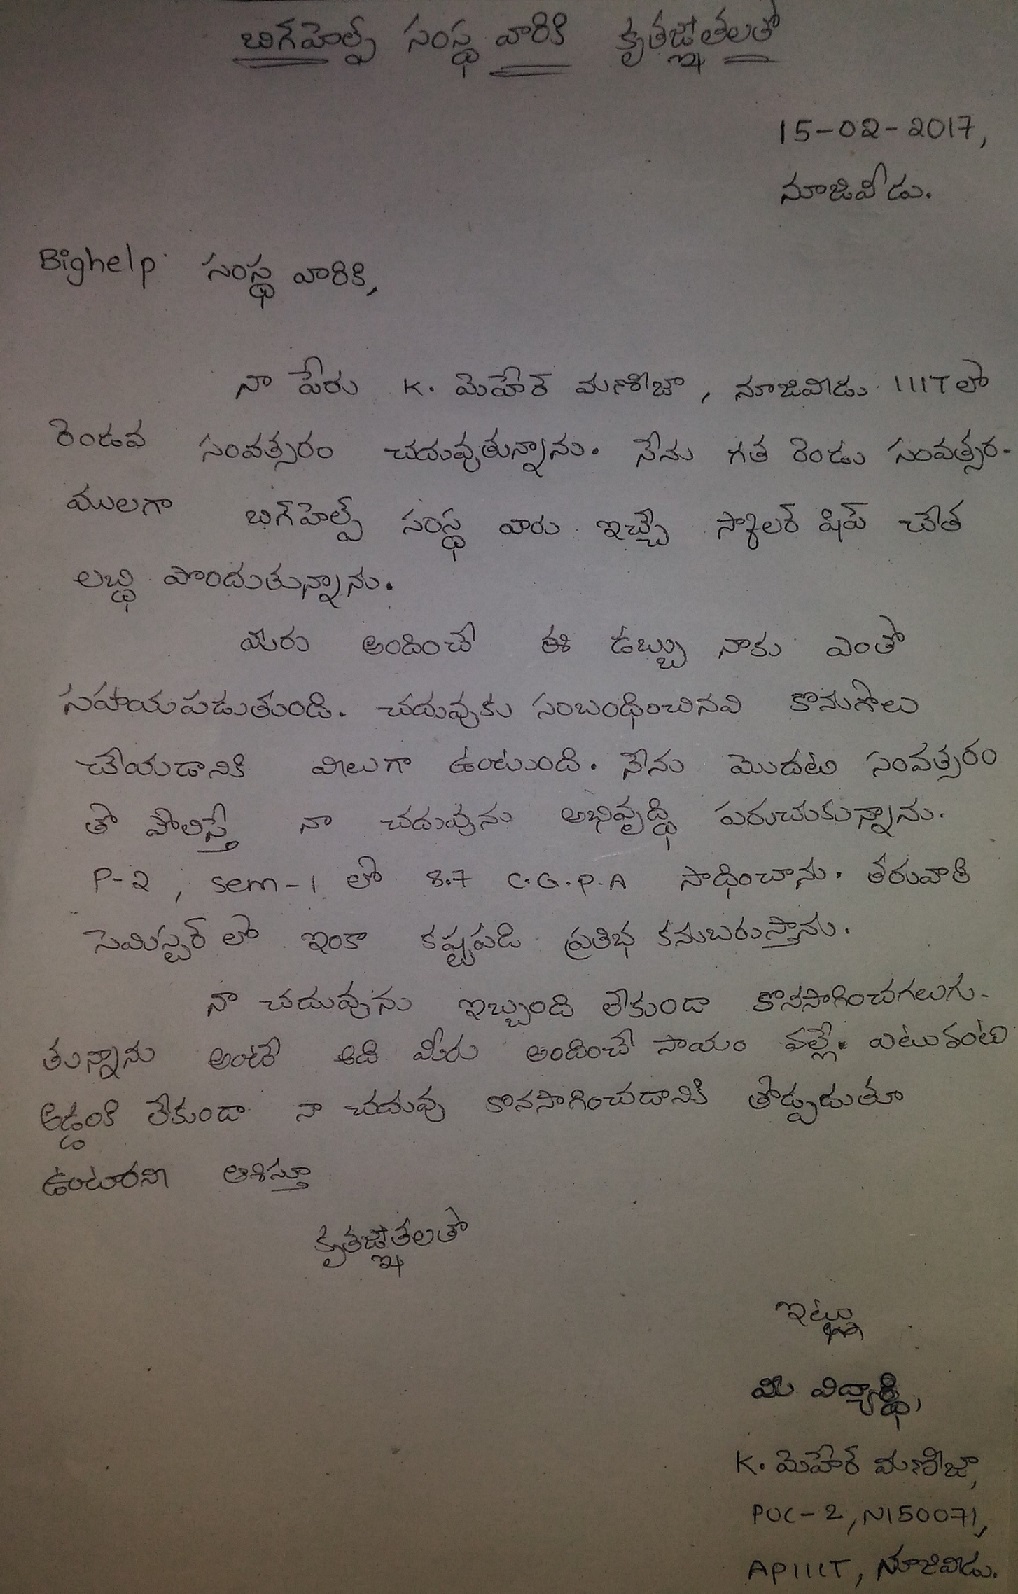 బిగ్‌హెల్ప్ సంస్థ వారికి కృతజ్ఞతలతో
15-02-2017,
నూజివీడు.
Bighelp సంస్థ వారికి,
నా పేరు K. మెహేర్ మణిజా, నూజివీడు IIIT లో
రెండవ సంవత్సరం చదువుతున్నాను. నేను గత రెండు సంవత్సర-
ములగా బిగ్‌హెల్ప్ సంస్థ వారు ఇచ్చే స్కాలర్ షిప్ చేత
లబ్ధి పొందుతున్నాను.
మీరు అందించే ఈ డబ్బు నాకు ఎంతో
సహాయపడుతుంది. చదువుకు సంబంధించినవి కొనుగోలు
చేయడానికి వీలుగా ఉంటుంది. నేను మొదటి సంవత్సరం
తో పోలిస్తే నా చదువును అభివృద్ధి పరుచుకున్నాను.
P-2, sem-1 లో 8.7 C.G.P.A సాధించాను. తరువాతి
సెమిస్టర్ లో ఇంకా కష్టపడి ప్రతిభ కనుబరుస్తాను.
నా చదువును ఇబ్బంది లేకుండా కొనసాగించగలుగు-
తున్నాను అంటే అది మీరు అందించే సాయం వల్లే. ఎటువంటి
అడ్డంకి లేకుండా నా చదువు కొనసాగించడానికి తోడ్పడుతూ
ఉంటారని ఆశిస్తూ
కృతజ్ఞతలతో
ఇట్లు
మీ విద్యార్థి,
K. మెహేర్ మణిజా,
PUC-2, N150071,
AP IIIT, నూజివీడు.